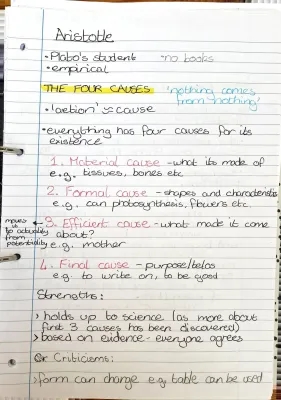 Aristotle
• Plato's student 'no books
• empirical
THE FOUR CAUSES 'nothing comes
from nothing'
• 'aetion' ≈ cause
• everything has four causes for its
existence
1. Material cause - what its made of
e.g. tissues, bones etc
2. Formal cause - shapes and characteristics
e.g. can photosynthesis, flowers etc.
moves
to actuality
from
potentiality
3. Efficient cause - what made it come
about?
e.g. mother
4. Final cause - purpose/telos
e.g. to write on, to be good
Strengths:
> holds up to science (as more about
first 3 causes has been discovered)
> based on evidence - everyone agrees
Or Criticisms:
> form can change e.g. table can be used